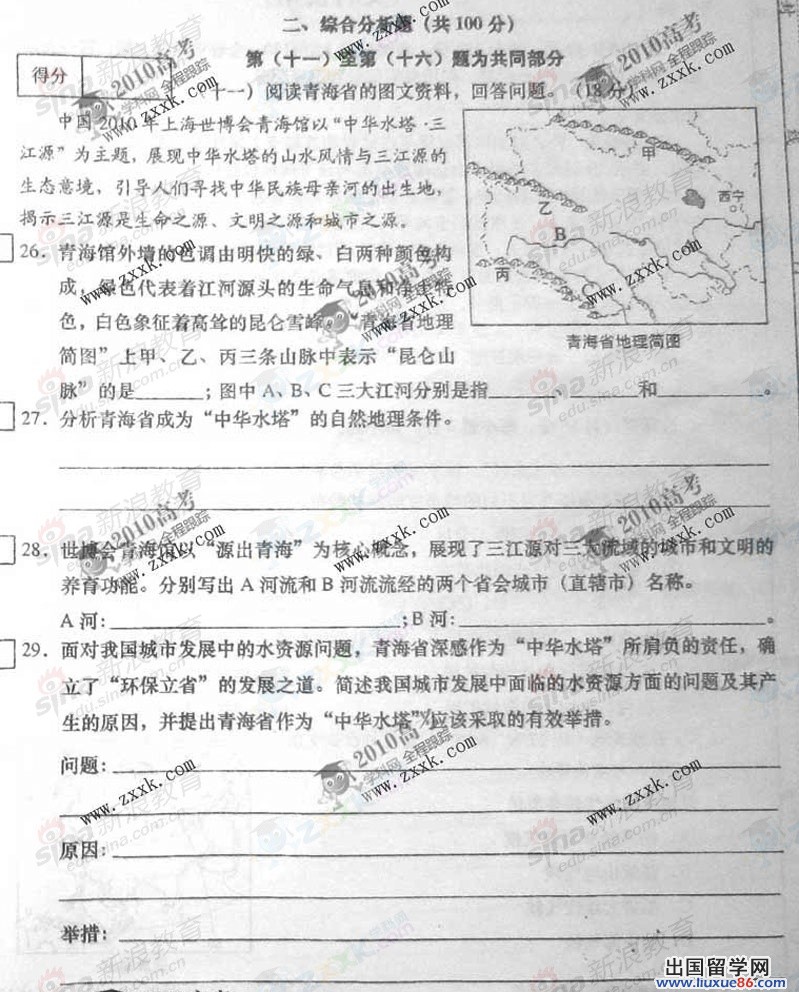 二、综合分析题（共100分）
第（十一）至第（十六）题为共同部分
得分
（十一）阅读青海省的图文资料，回答问题。（18分）
中国2010年上海世博会青海馆以“中华水塔·三
江源”为主题，展现中华水塔的山水风情与三江源的
生态意境，引导人们寻找中华民族母亲河的出生地，
揭示三江源是生命之源、文明之源和城市之源。
甲
西宁
乙
B
丙
C
青海省地理简图
26．青海馆外墙的色调由明快的绿、白两种颜色构
成，绿色代表着江河源头的生命气息和净土特
色，白色象征着高耸的昆仑雪峰。“青海省地理
简图”上甲、乙、丙三条山脉中表示“昆仑山
脉”的是______；图中A、B、C三大江河分别是指______、______和______。
27．分析青海省成为“中华水塔”的自然地理条件。
28．世博会青海馆以“源出青海”为核心概念，展现了三江源对三大流域的城市和文明的
养育功能。分别写出A河流和B河流流经的两个省会城市（直辖市）名称。
A河：______；B河：______。
29．面对我国城市发展中的水资源问题，青海省深感作为“中华水塔”所肩负的责任，确
立了“环保立省”的发展之道。简述我国城市发展中面临的水资源方面的问题及其产
生的原因，并提出青海省作为“中华水塔”应该采取的有效举措。
问题：
原因：
举措：
2010高考
学科网 全程跟踪
www.zxxk.com
sina新浪教育
edu.sina.com.cn
出国留学网
www.liuxue86.com